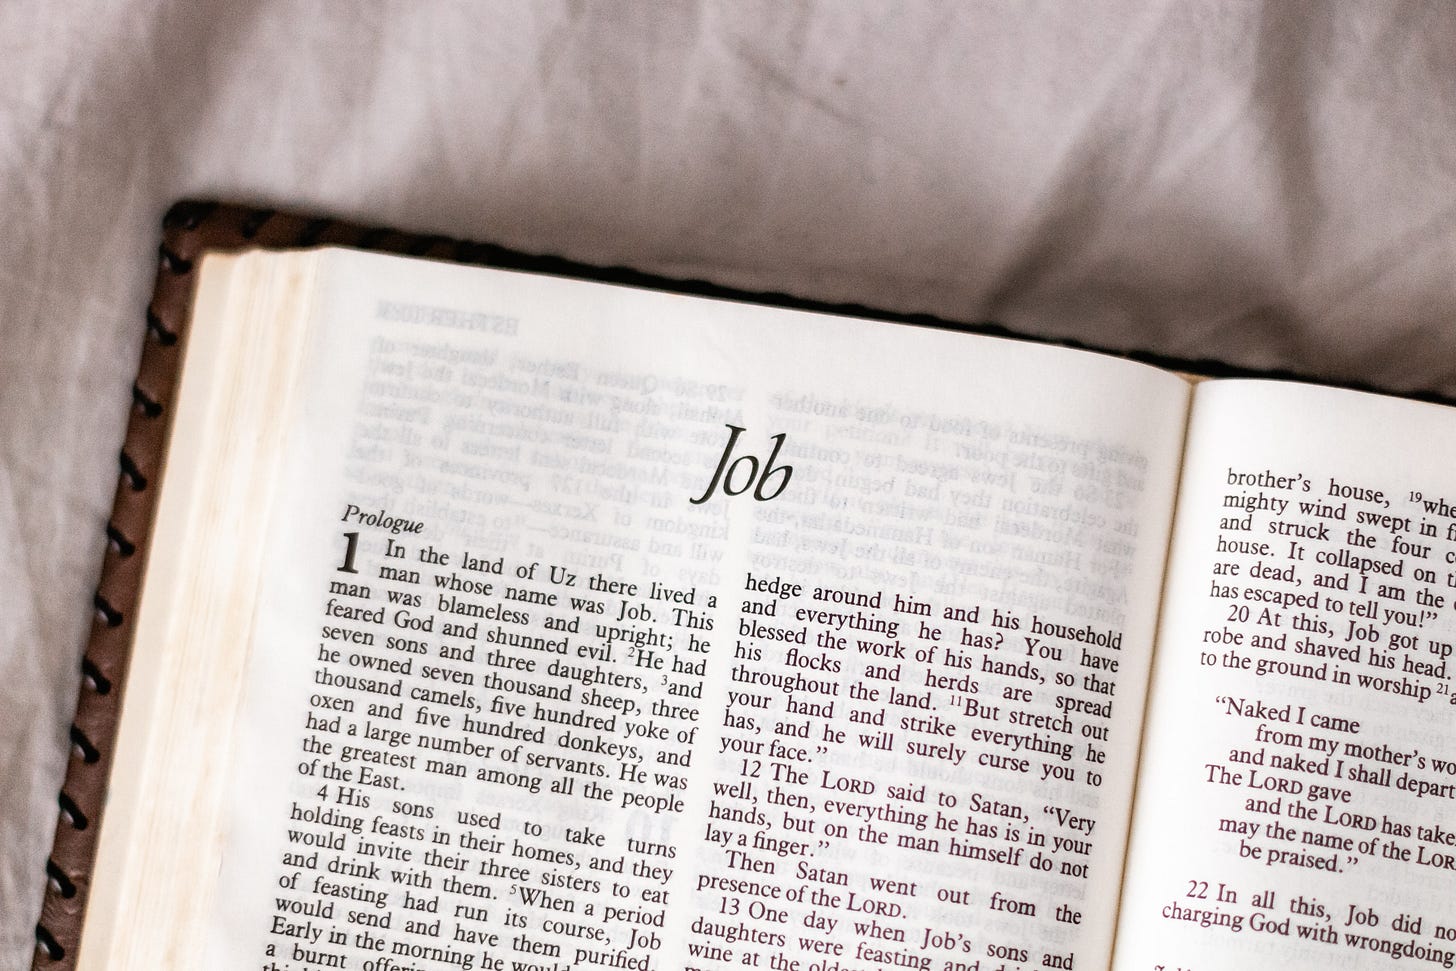 Job
Prologue
1 In the land of Uz there lived a
man whose name was Job. This
man was blameless and upright; he
feared God and shunned evil. 2He had
seven sons and three daughters, 3and
he owned seven thousand sheep, three
thousand camels, five hundred yoke of
oxen and five hundred donkeys, and
had a large number of servants. He was
the greatest man among all the people
of the East.
4 His sons used to take turns
holding feasts in their homes, and they
would invite their three sisters to eat
and drink with them. 5When a period
of feasting had run its course, Job
would send and have them purified.
Early in the morning he would
a burnt
hedge around him and his household
and everything he has? You have
blessed the work of his hands, so that
his flocks and herds are spread
throughout the land. 11But stretch out
your hand and strike everything he
has, and he will surely curse you to
your face.”
12 The LORD said to Satan, “Very
well, then, everything he has is in your
hands, but on the man himself do not
lay a finger.”
Then Satan went out from the
presence of the LORD.
13 One day when Job’s sons and
daughters were feasting and
wine at the
brother’s house, 19whe
mighty wind swept in
and struck the four
house. It collapsed on
are dead, and I am the
has escaped to tell you!”
20 At this, Job got up
robe and shaved his head.
to the ground in worship 21
“Naked I came
from my mother’s wo
and naked I shall depart
The LORD gave
and the LORD has take
may the name of the LOR
be praised.”
22 In all this, Job did no
charging God with wrongdoing